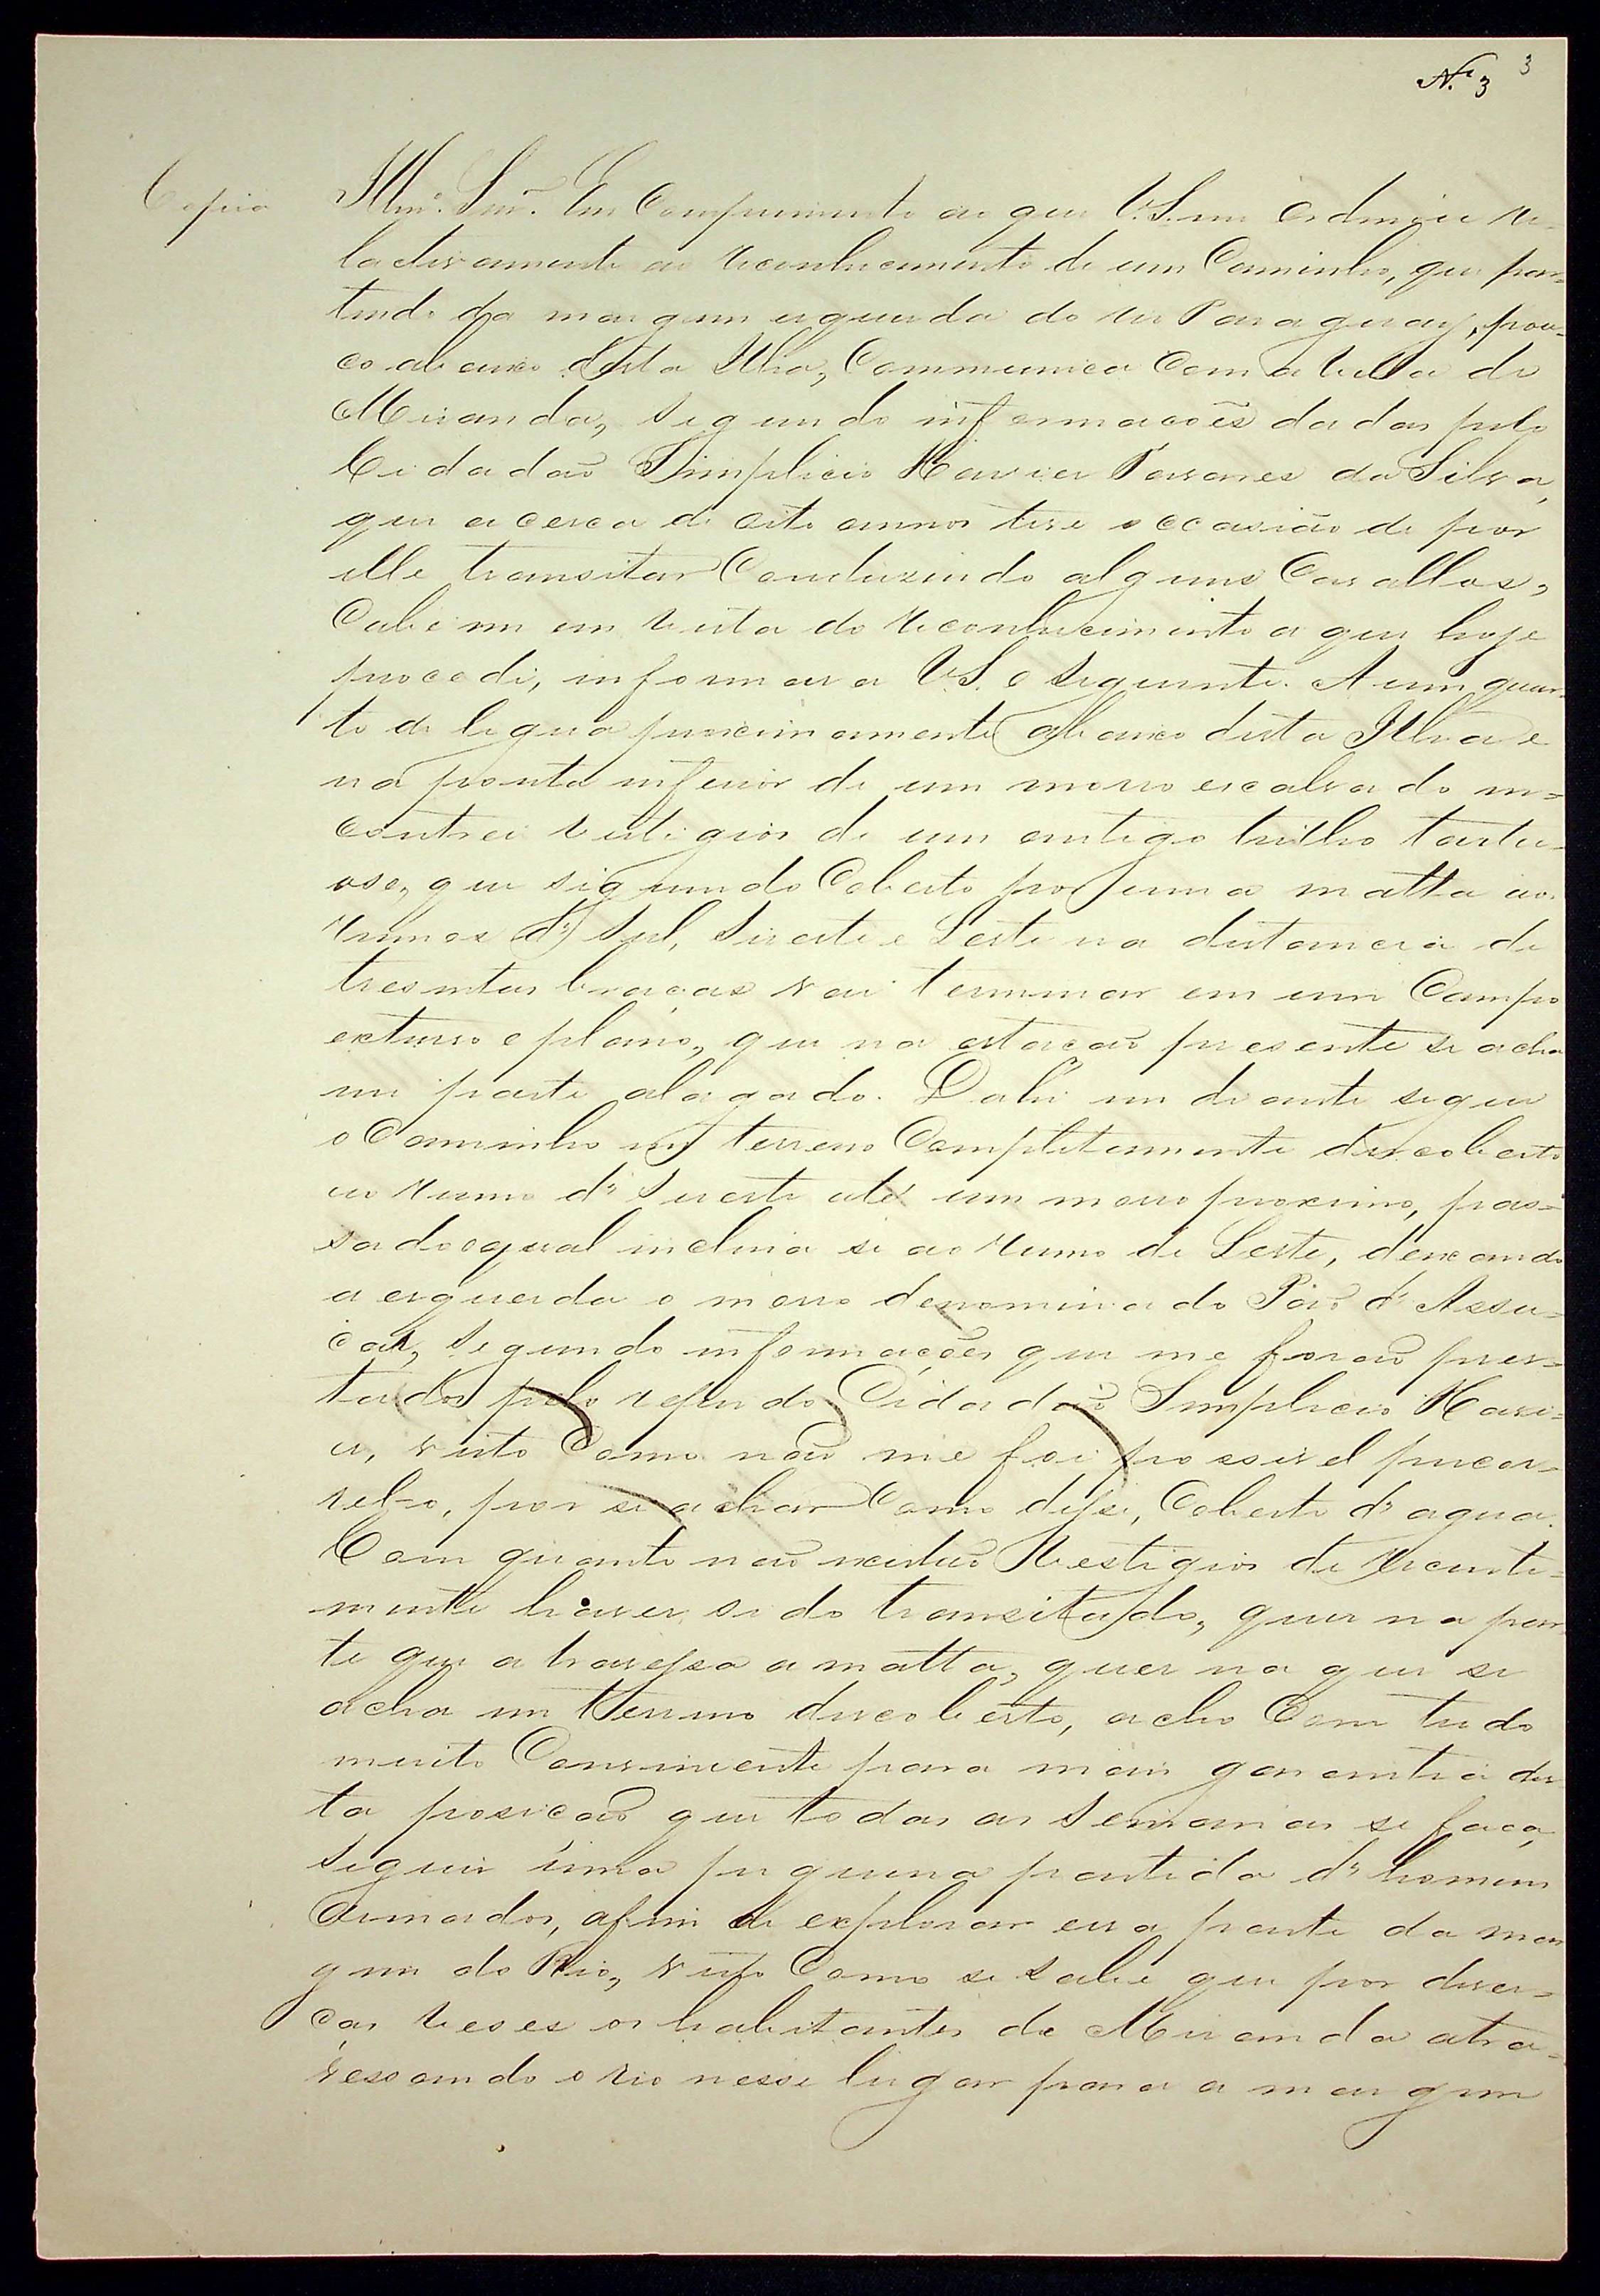 Nº 3 3
Copia
Illmº. Snr. Em Comprimento ao que V.S. me Ordenou re-
lativamente ao reconhecimento de um Caminho, que par-
tindo da margem esquerda do rio Paraguay, pou-
co abaixo desta Ilha, Communica Com a Villa de
Miranda, segundo informações dadas pelo
Cidadaõ Simplicio Xavier Tavares da Silva,
que a cerca de oito annos teve occasião de por
elle transitar Conduzindo alguns Cavallos,
Cabe-me em vista do reconhecimento a que hoje
procedi, informar a V.S. o seguinte. A um quar-
to de legua proximamente abaixo desta Ilha e
na ponta inferior de um morro escalvado en-
contrei vestigios de um antigo trilho tortu-
oso, que seguindo Coberto por uma matta aos
rumos dº Sul, Sueste e Leste na distancia de
tresentas braças vai terminar em um Campo
extenso e plano, que na estaçaõ presente se acha
em parte alagado. Dahi em deante segue
o Caminho em terreno Completamente descoberto
ao rumo dº Sueste até um morro proximo, pas-
sado o qual inclina se ao rumo de Leste, deixando
a esquerda o morro denominado Paõ d' Assu-
car, segundo informações que me foraõ pres-
tadas pelo referido Cidadaõ Simplicio Xavi-
er, visto Como naõ me foi possivel percor-
rel-o, por se achar Como disse, Coberto dº agua.
Com quanto naõ existaõ Vestigios de recente-
mente haver sido transitado, quer na par-
te que atravessa a matta, quer na que se
acha em terreno descoberto, acho Com tudo
muito Conveniente para mais garantia des-
ta posiçaõ que todas as Semanas se faça
seguir uma pequena partida dº homens
Armados, afim de explorar essa parte da mar
gem do Rio, visto Como se sabe que por diver-
ças veses os habitantes de Miranda atra-
vessando o rio nesse lugar para a margem